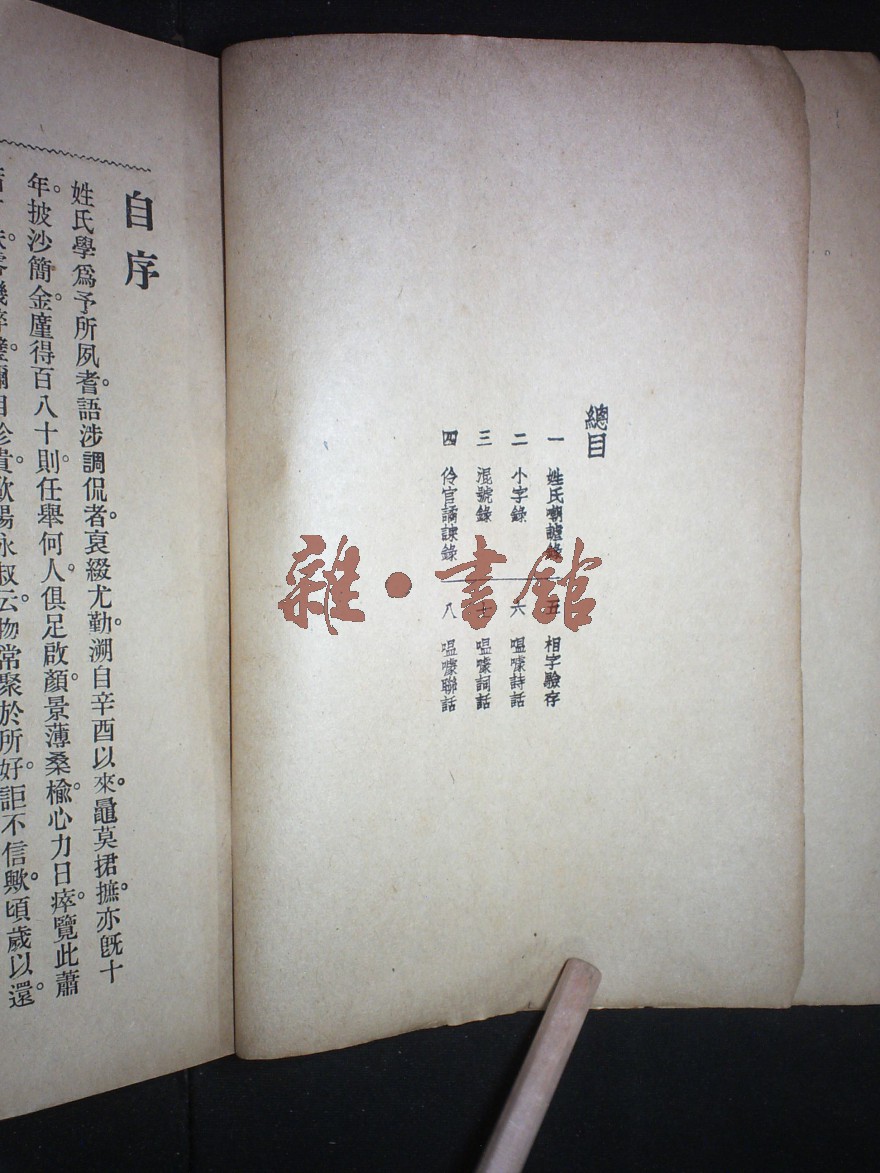 總目
一 姓氏嘲謔錄
二 小字錄
三 混號錄
四 伶官譎諫錄
五 相字驗存
六 嗢噱詩話
七 嗢噱詞話
八 嗢噱聯話
雜·書館
自序
姓氏學爲予所夙耆。語涉調侃者。裒綴尤勤。溯自辛酉以來。鼂莫捃摭。亦旣十
年。披沙簡金。廑得百八十則。任舉何人。俱足啟顏。景薄桑榆。心力日瘁。覽此蕭
珍貴。歐陽永叔云。物常聚於所好。詎不信歟。頃歲以還。